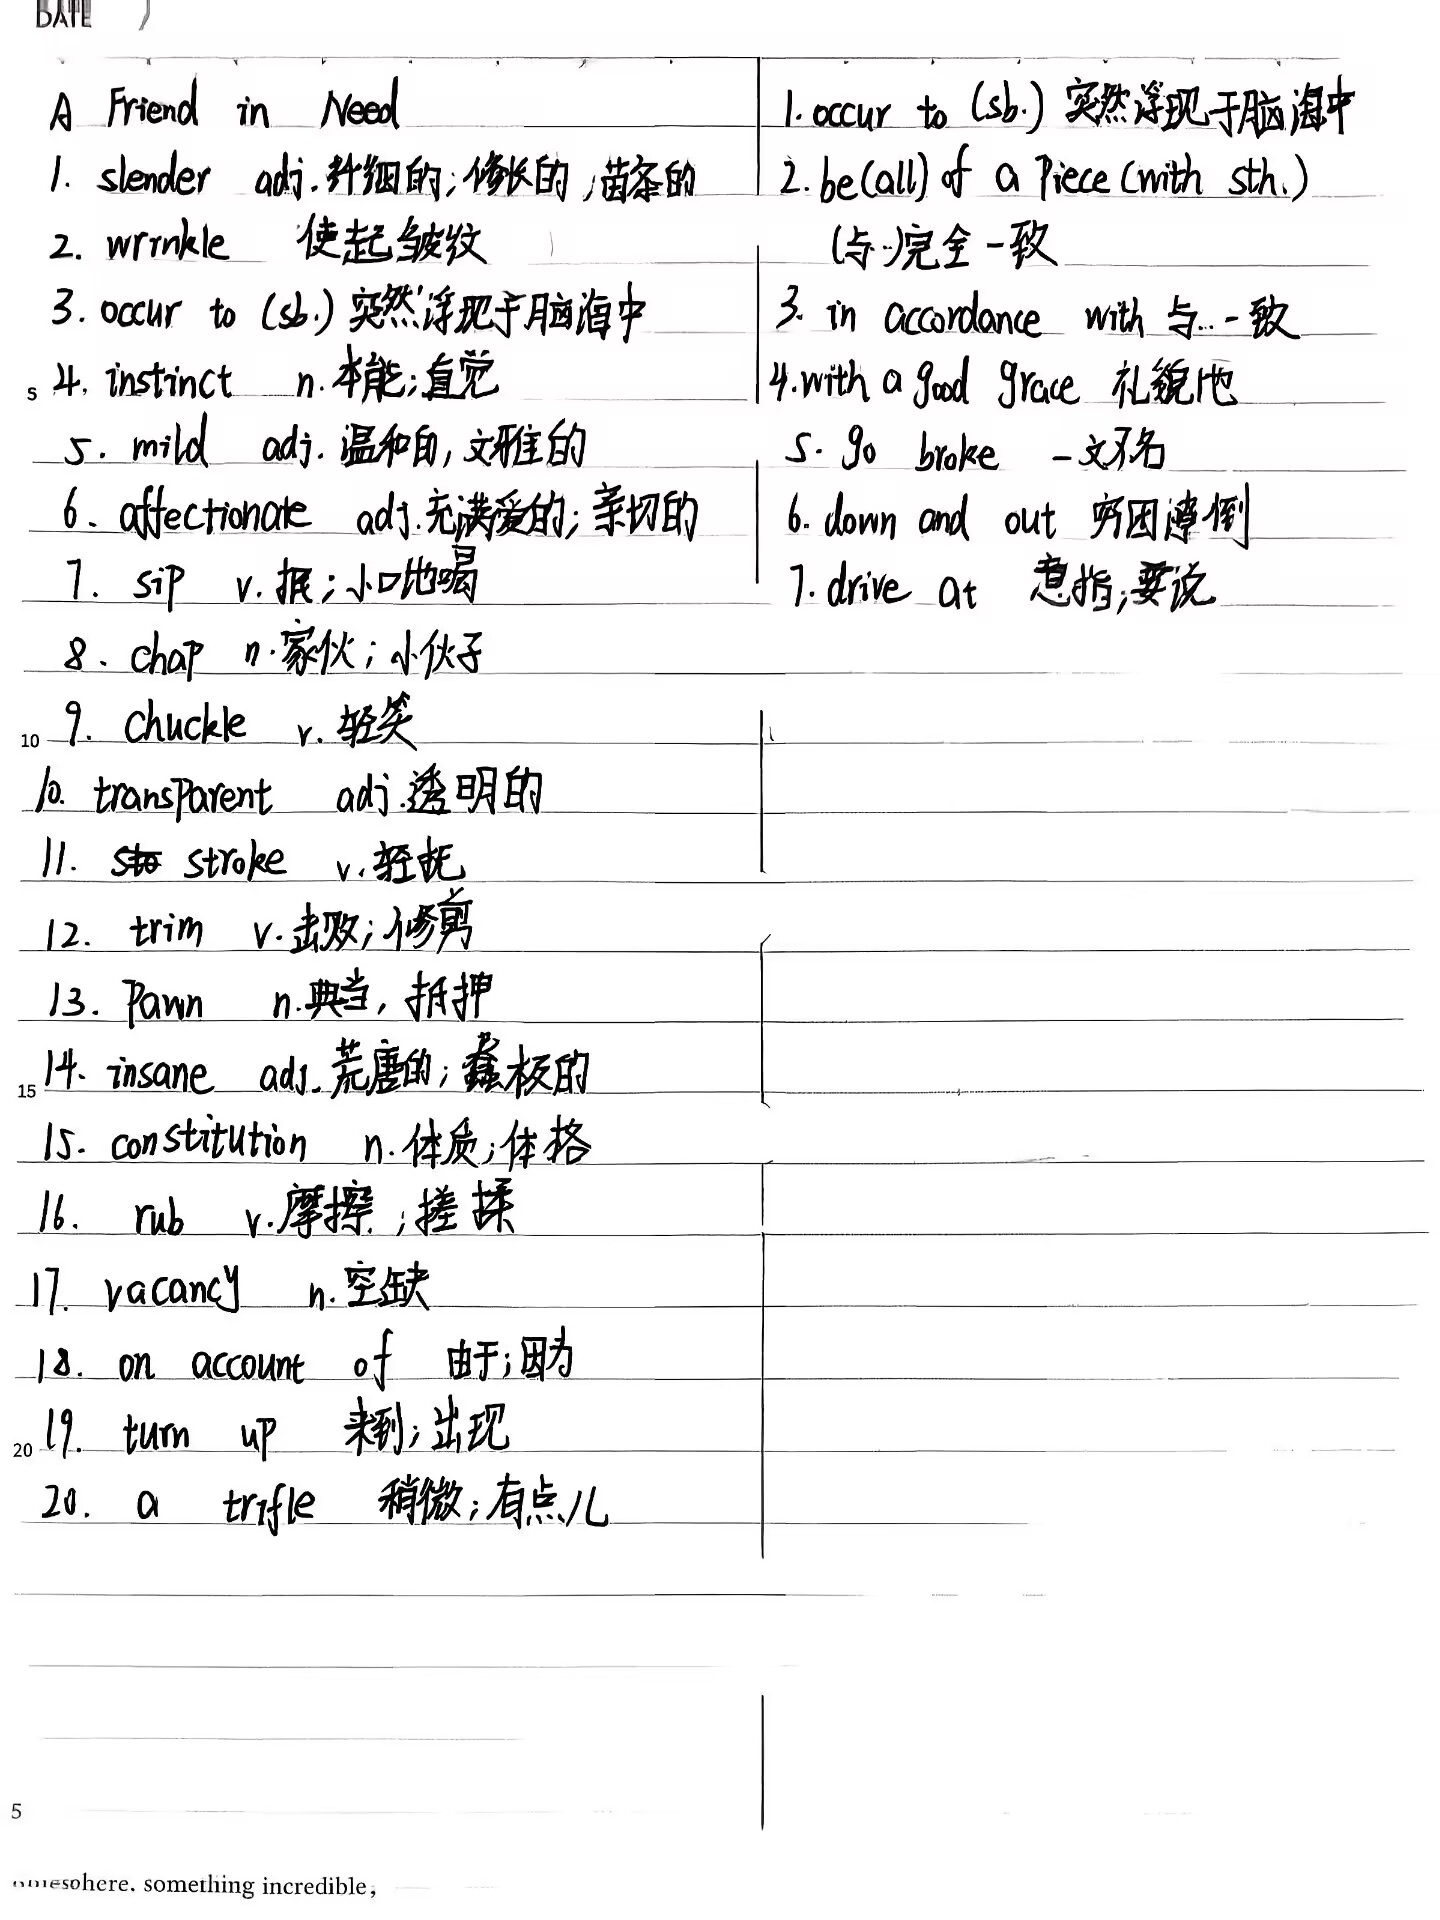 DATE
A Friend in Need
1. slender adj.纤细的;修长的;苗条的
2. wrinkle 使起皱纹
3. occur to (sb.) 突然浮现于脑海中
5
4. instinct n.本能;直觉
5. mild adj.温和的,文雅的
6. affectionate adj.充满爱的;亲切的
7. sip v.抿;小口地喝
8. chap n.家伙;小伙子
10
9. chuckle v.轻笑
10. transparent adj.透明的
11. sto stroke v.轻抚
12. trim v.击败;修剪
13. Pawn n.典当,抵押
15
14. insane adj.荒唐的;蠢极的
15. constitution n.体质;体格
16. rub v.摩擦;搓揉
17. vacancy n.空缺
18. on account of 由于;因为
20
19. turn up 来到;出现
20. a trifle 稍微;有点儿
1. occur to (sb.) 突然浮现于脑海中
2. be(all) of a Piece (with sth.)
(与…)完全一致
3. in accordance with 与…一致
4. with a good grace 礼貌地
5. go broke 一文不名
6. down and out 穷困潦倒
7. drive at 意指;要说
5
something incredible,